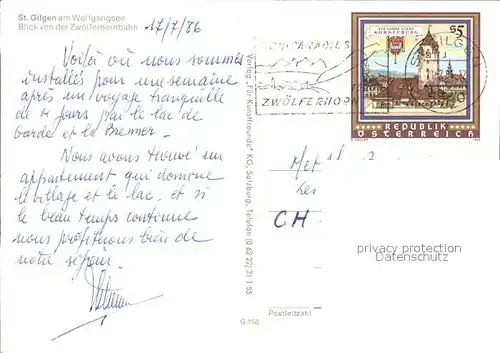 St. Gilgen am Wolfgangsee
Blick von der Zwölferhornbahn
17/7/86
Voici où nous sommes
installés pour une semaine
après un voyage tranquille
de 4 jours par le lac de
Garde et le Brenner.
Nous avons trouvé un
appartement qui domine
le village et le lac, et si
le beau temps continue
nous profiterons bien de
notre séjour.
Verlag "Für Kunstfreunde" KG, Salzburg, Telefon (0 62 22) 31 1 55
ZWÖLFERHORN
ST. GILGEN
850 JAHRE STADT
KORNEUBURG
S5
REPUBLIK
ÖSTERREICH
M et
Les
CH
privacy protection
Datenschutz
Postleitzahl
G 158